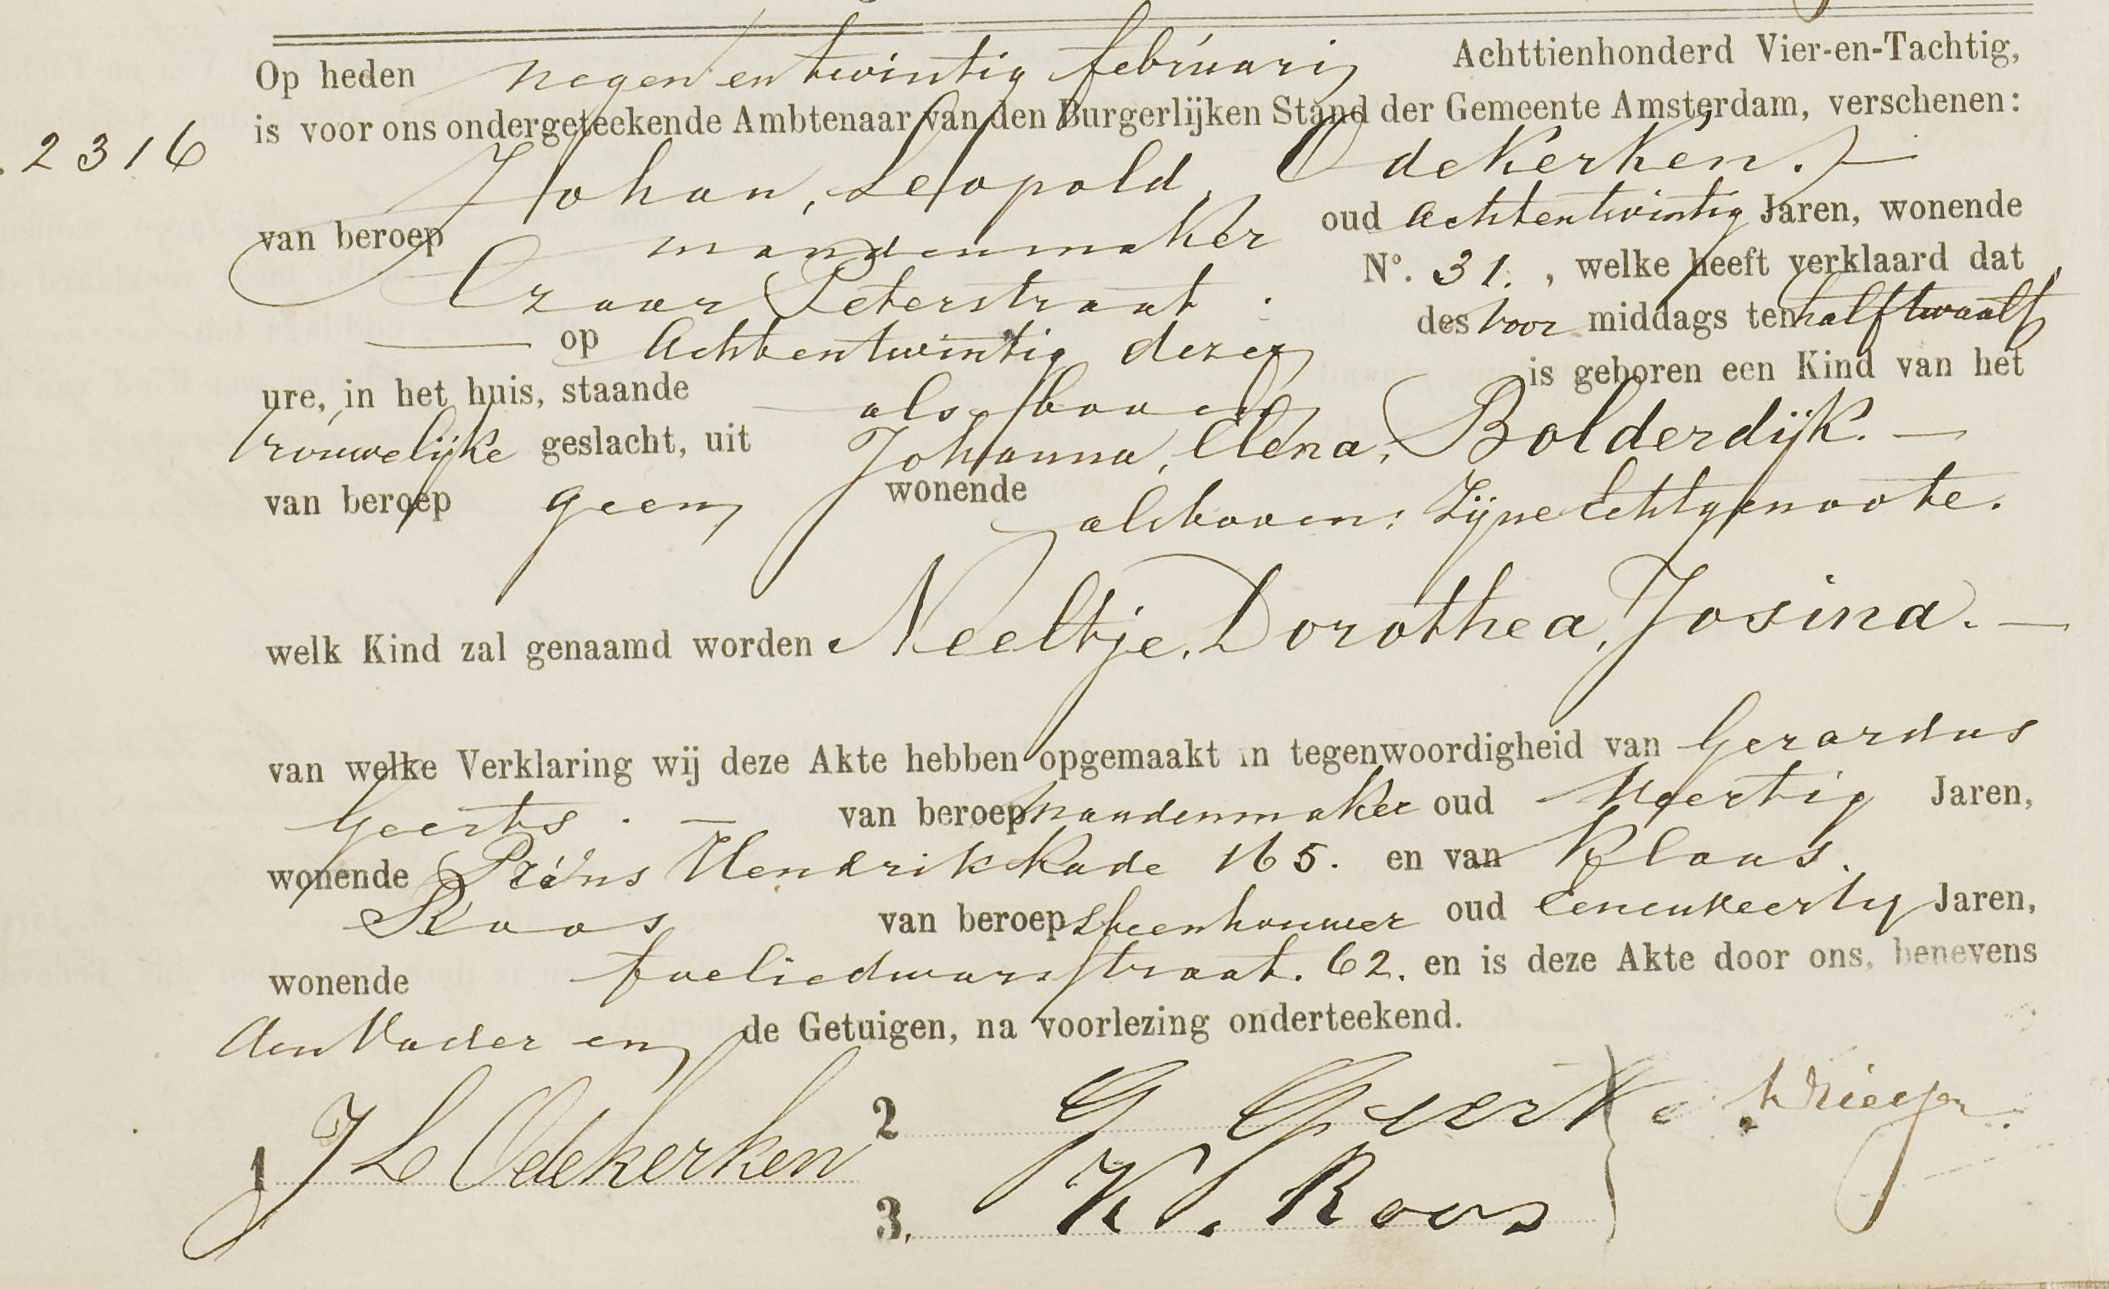 Op heden negen en twintig februarij Achttienhonderd Vier-en-Tachtig,
is voor ons ondergeteekende Ambtenaar van den Burgerlijken Stand der Gemeente Amsterdam, verschenen:
2316
Johan, Leopold, Odekerken. —
van beroep mandenmaker oud Achtentwintig Jaren, wonende
Czaar Peterstraat. No. 31., welke heeft verklaard dat
— op Achtentwintig dezer des voor middags ten half twaalf
ure, in het huis, staande als boven is geboren een Kind van het
Vrouwelijke geslacht, uit Johanna, Elena, Bolderdijk. —
van beroep geen wonende alsboven: Zijne Echtgenoote.
welk Kind zal genaamd worden Neeltje, Dorothea, Josina. —
van welke Verklaring wij deze Akte hebben opgemaakt in tegenwoordigheid van Gerardus
Geerts. — van beroep mandenmaker oud Veertig Jaren,
wonende Prins Hendrikkade 165. en van Klaas.
Roos van beroep Steenhouwer oud Eenenveertig Jaren,
wonende foeliedwarsstraat. 62. en is deze Akte door ons, benevens
den Vader en de Getuigen, na voorlezing onderteekend.
1 J L Odekerken
2 G Geerts
3. K. Roos